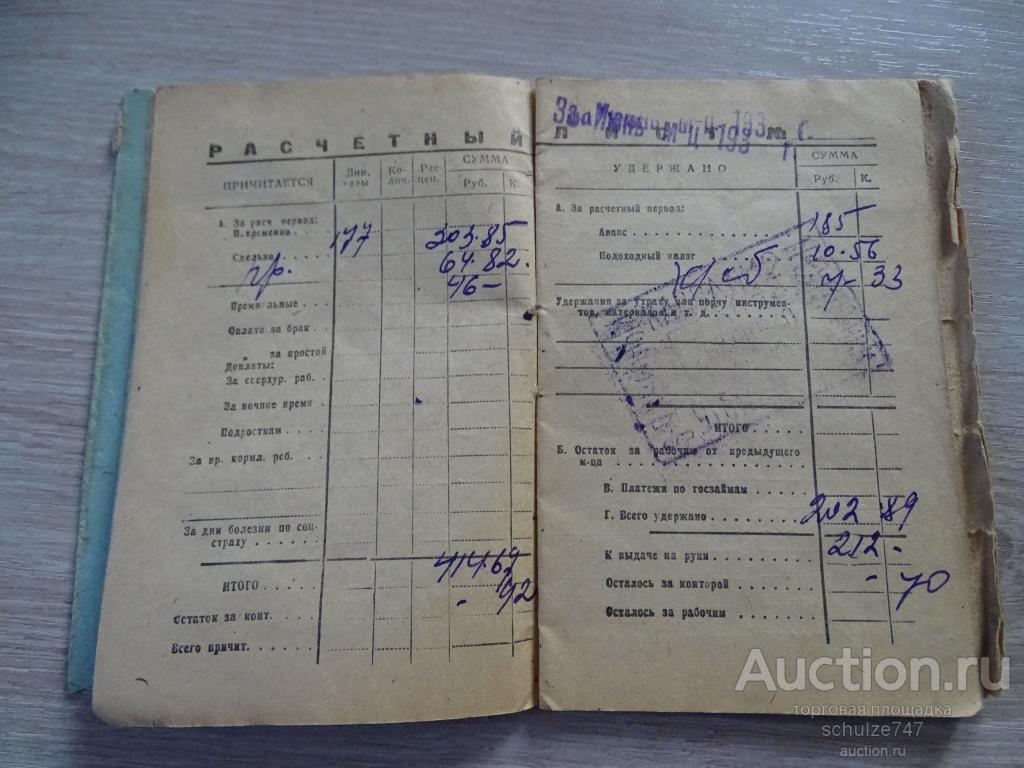 РАСЧЕТНЫЙ
ПРИЧИТАЕТСЯ
Дни, часы
Ко-лич.
Рас-цен.
СУММА
Руб. К.
А. За расч период:
Повременно 177 303.85
Сдельно 64.82.
46-
Премиальные
Оплата за брак
Доплаты: за простой
За сверхур. раб.
За ночное время
Подросткам
За вр. кормл. реб.
За дни болезни по соцстраху
414.67
ИТОГО
- 92
Остаток за конт.
Всего причит.
м-ц 193 г.
УДЕРЖАНО
СУММА
Руб. К.
А. За расчетный период:
Аванс 185
Подоходный налог 10.56
7- 33
Удержания за утрату или порчу инструмен-
тов, материалов и т. д.
ИТОГО
Б. Остаток за рабочим от предыдущего
м-ца
В. Платежи по госзаймам
Г. Всего удержано 202 89
К выдаче на руки 212 -
Осталось за конторой - 70
Осталось за рабочим
Auction.ru
торговая площадка
schulze747
auction.ru